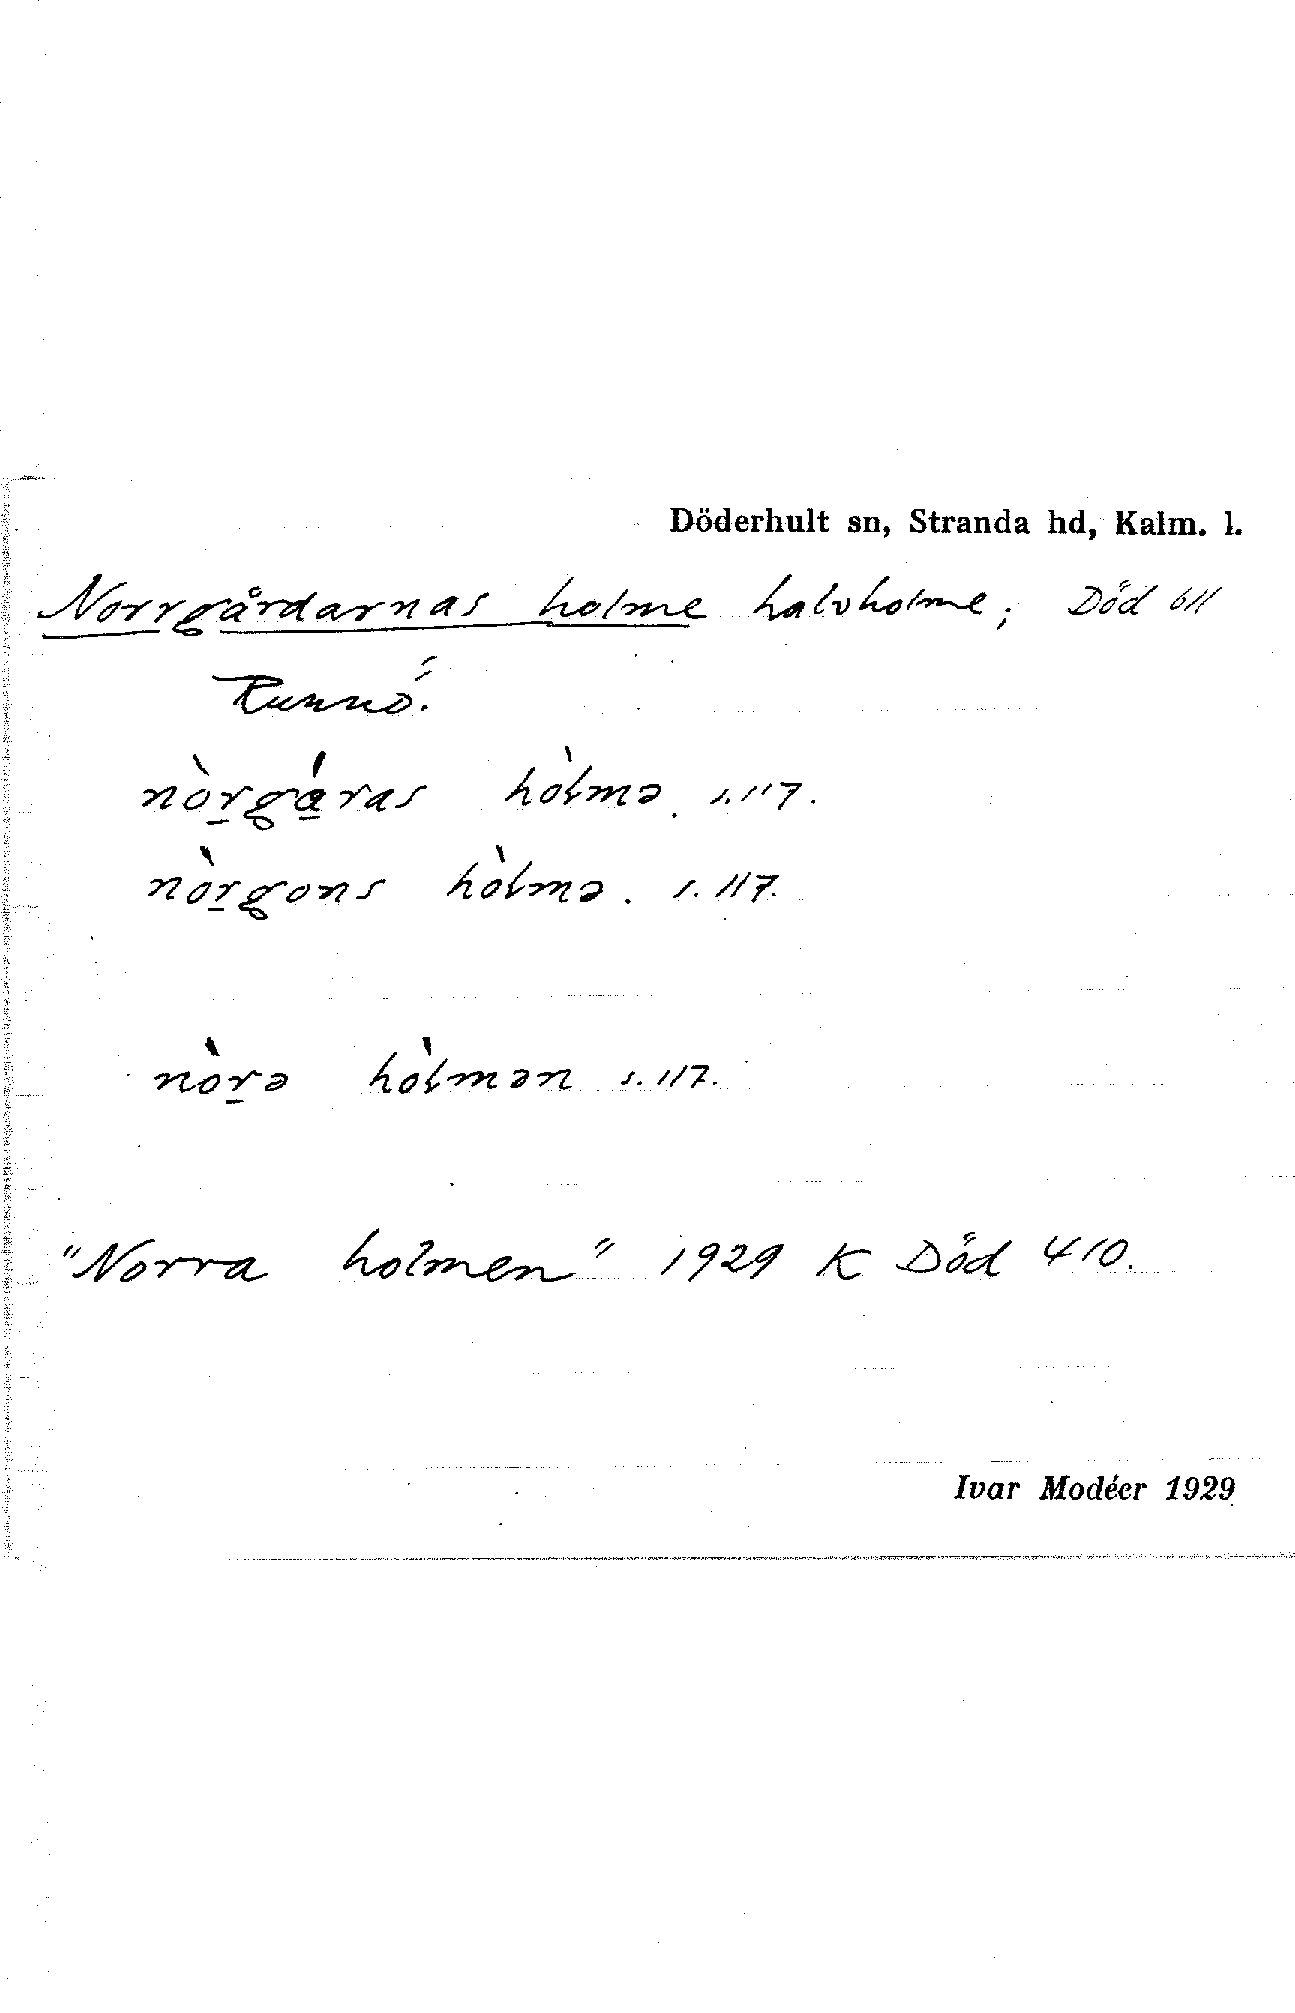 Döderhult sn, Stranda hd, Kalm. l.
Norrgårdarnas holme halvholme; Död 611
Runnö.
nòr̲gɑ̲́ras hòlmə. s.117.
nòr̲gons hòlmə. s. 117.
nòr̲ə hòlmən s. 117.
"Norra holmen" 1929 K Död 410.
Ivar Modéer 1929